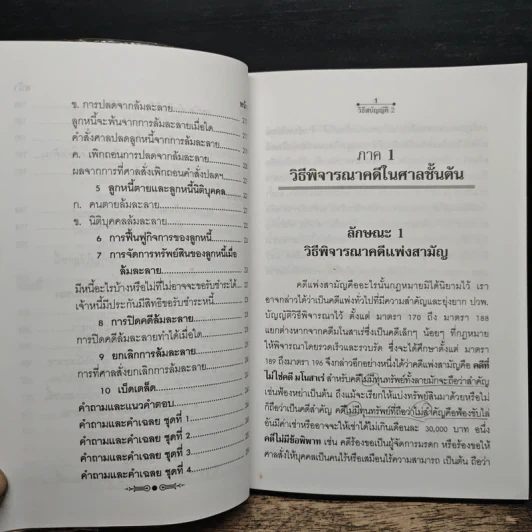 ข. การปลดจากล้มละลาย
ลูกหนี้จะพ้นจากการล้มละลายเมื่อใด
คำสั่งศาลปลดลูกหนี้จากการล้มละลาย
ค. เพิกถอนการปลดจากล้มละลาย
ผลจากการที่ศาลสั่งเพิกถอนคำสั่งปลดฯ
5 ลูกหนี้ตายและลูกหนี้นิติบุคคล
ก. คนตายล้มละลาย
ข. นิติบุคคลล้มละลาย
6 การฟื้นฟูกิจการของลูกหนี้
7 การจัดการทรัพย์สินของลูกหนี้เมื่อ
ล้มละลาย
มีหนี้อะไรบ้างหรือไม่ที่ไม่อาจจะขอรับชำระได้
เจ้าหนี้มีประกันมีสิทธิขอรับชำระหนี้
8 การปิดคดีล้มละลาย
การปิดคดีล้มละลายทำได้เมื่อใด
9 ยกเลิกการล้มละลาย
การที่ศาลสั่งยกเลิกการล้มละลาย
10 เบ็ดเตล็ด
คำถามและแนวคำตอบ
คำถามและคำเฉลย ชุดที่ 1
คำถามและคำเฉลย ชุดที่ 2
คำถามและคำเฉลย ชุดที่ 3
คำถามและคำเฉลย ชุดที่ 4
1
วิธีสบัญญัติ 2
ภาค 1
วิธีพิจารณาคดีในศาลชั้นต้น
ลักษณะ 1
วิธีพิจารณาคดีแพ่งสามัญ
คดีแพ่งสามัญคืออะไรนั้นกฎหมายมิได้นิยามไว้ เรา
อาจกล่าวได้ว่าเป็นคดีแพ่งทั่วไปที่มีความสำคัญและยุ่งยาก ปวพ.
บัญญัติวิธีพิจารณาไว้ ตั้งแต่ มาตรา 170 ถึง มาตรา 188
แยกต่างหากจากคดีมโนสาเร่ซึ่งเป็นคดีเล็กๆ น้อยๆ ที่กฎหมาย
ให้พิจารณาโดยรวดเร็วและรวบรัด ซึ่งจะได้ศึกษาตั้งแต่ มาตรา
189 ถึงมาตรา 196 จึงกล่าวอีกอย่างหนึ่งได้ว่าคดีแพ่งสามัญคือ คดีที่
ไม่ใช่คดี มโนสาเร่ สำหรับคดีไม่มีทุนทรัพย์ทั้งลายมักจะถือว่าสำคัญ
เช่นฟ้องหย่าเป็นต้น ถึงแม้จะเรียกให้แบ่งทรัพย์สินมาด้วยหรือไม่
ก็ถือว่าเป็นคดีสำคัญ คดีไม่มีทุนทรัพย์ที่ถือว่าไม่สำคัญคือฟ้องขับไล่
อันมีค่าเช่าหรืออาจจะให้เช่าได้ไม่เกินเดือนละ 30,000 บาท อนึ่ง
คดีไม่มีข้อพิพาท เช่น คดีร้องขอเป็นผู้จัดการมรดก หรือร้องขอให้
ศาลสั่งให้บุคคลเป็นคนไร้หรือเสมือนไร้ความสามารถ เป็นต้น ถือว่า